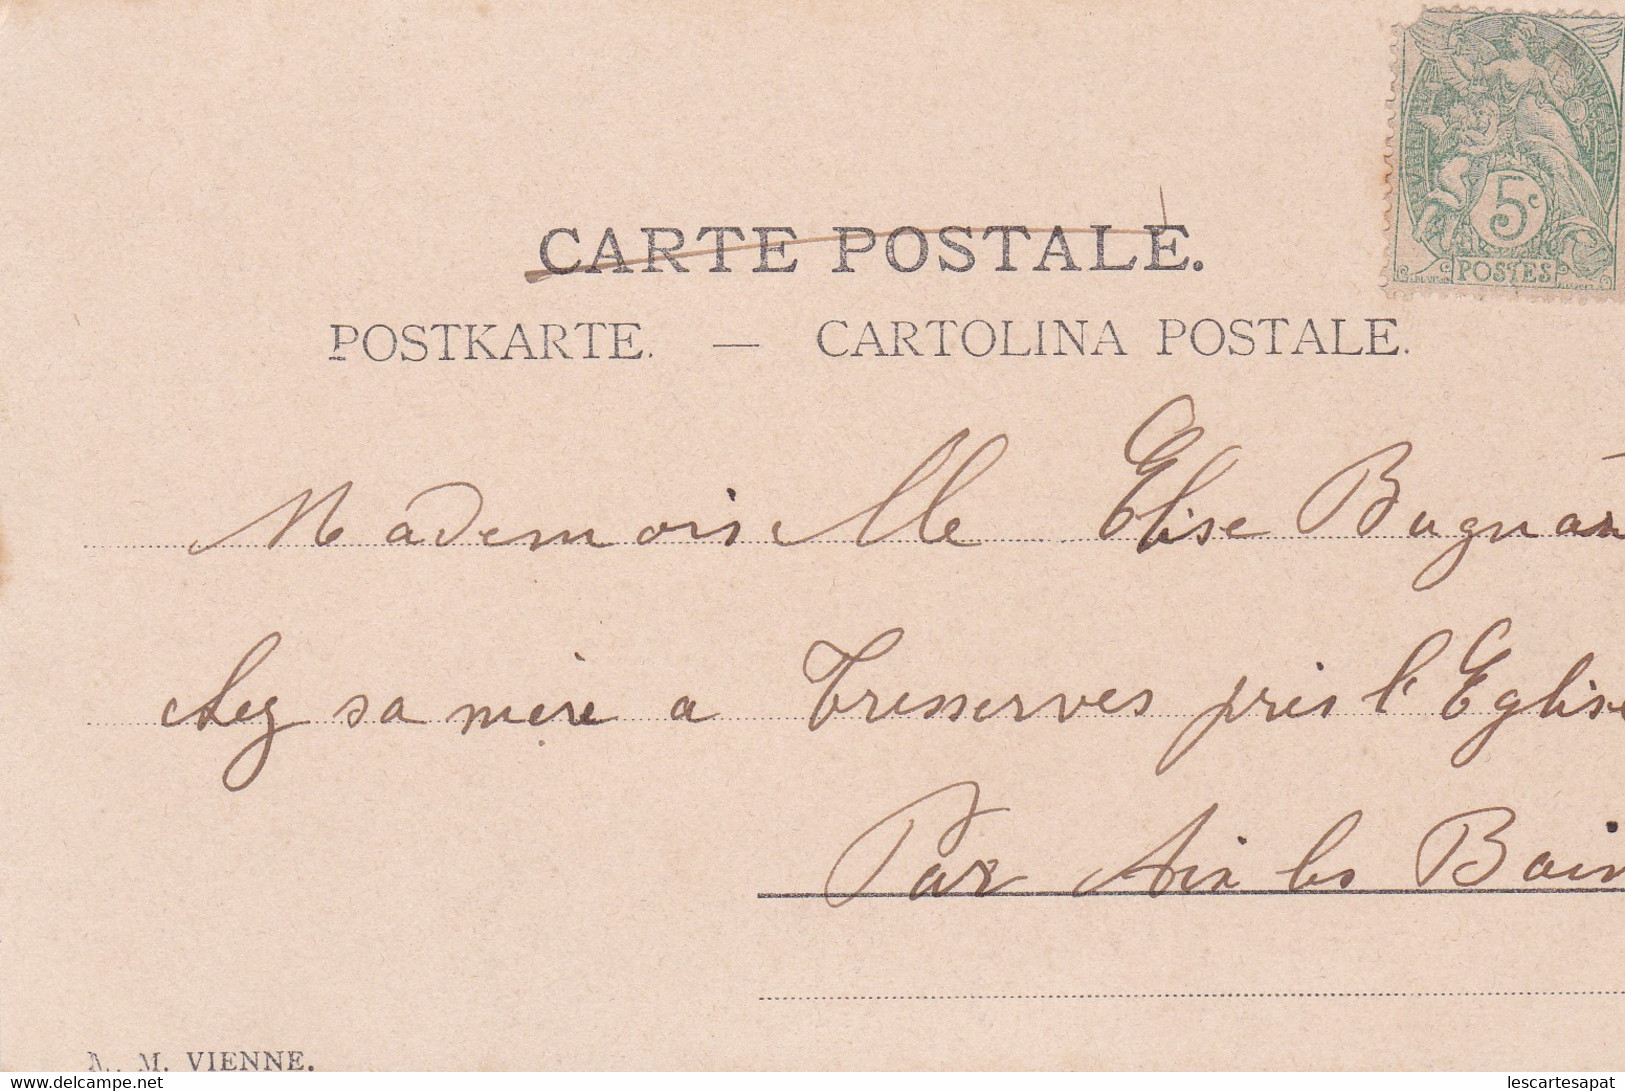 5c
POSTES
CARTE POSTALE.
POSTKARTE. — CARTOLINA POSTALE.
Mademoiselle Elise
chez sa mère a Tresserves près l'Eglise
Par Aix les Bain
M. M. VIENNE.
delcampe.net
lescartesapat